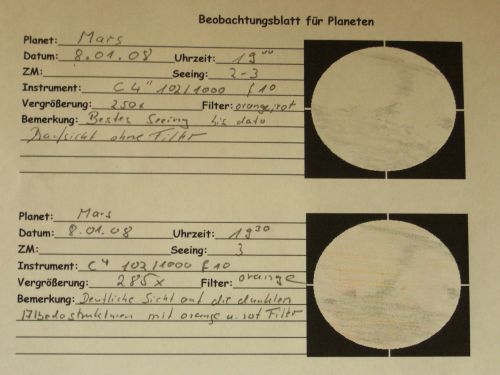 Beobachtungsblatt für Planeten
Planet: Mars
Datum: 8.01.08 Uhrzeit: 19⁰⁰
ZM: Seeing: 2-3
Instrument: C 4" 102/1000 f10
Vergrößerung: 250x Filter: orange, rot
Bemerkung: Bestes Seeing bis dato
Draufsicht ohne Filter
Planet: Mars
Datum: 8.01.08 Uhrzeit: 19³⁰
ZM: Seeing: 3
Instrument: C 4" 102/1000 f10
Vergrößerung: 285x Filter: orange
Bemerkung: Deutliche Sicht auf die dunklen
Albedostrukturen mit orange u. rot Filter